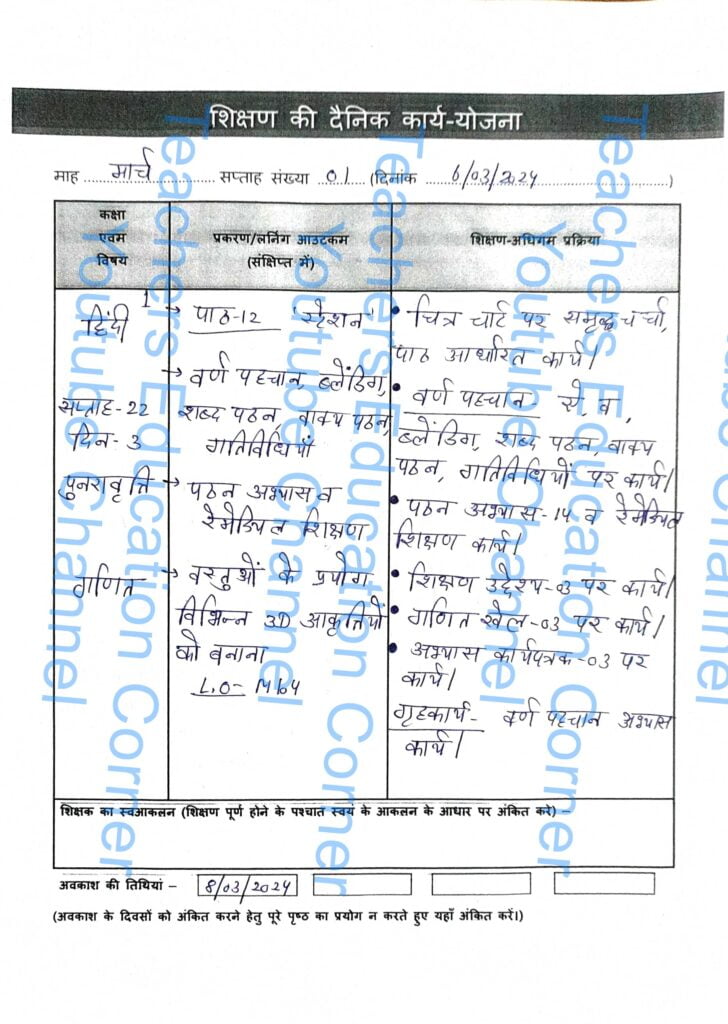 शिक्षण की दैनिक कार्य-योजना
माह मार्च सप्ताह संख्या 01 (दिनांक 6/03/2024)
कक्षा एवम विषय
प्रकरण/लर्निंग आउटकम (संक्षिप्त में)
शिक्षण-अधिगम प्रक्रिया
1
हिंदी
सप्ताह-22
दिन-3
पुनरावृत्ति
गणित
→ पाठ-12 'स्टेशन'
→ वर्ण पहचान, ब्लेंडिंग,
शब्द पठन, वाक्य पठन,
गतिविधियाँ
→ पठन अभ्यास व
रेमेडियल शिक्षण
→ वस्तुओं के प्रयोग
विभिन्न 3D आकृतियों
को बनाना
L.O-M164
• चित्र चार्ट पर समृद्ध चर्चा,
पाठ आधारित कार्य।
• वर्ण पहचान- से, व,
ब्लेंडिंग, शब्द पठन, वाक्य
पठन, गतिविधियों पर कार्य।
• पठन अभ्यास-14 व रेमेडियल
शिक्षण कार्य।
• शिक्षण उद्देश्य-03 पर कार्य।
• गणित खेल-03 पर कार्य।
• अभ्यास कार्यपत्रक-03 पर
कार्य।
गृहकार्य- वर्ण पहचान अभ्यास
कार्य।
शिक्षक का स्वआकलन (शिक्षण पूर्ण होने के पश्चात स्वयं के आकलन के आधार पर अंकित करे) –
अवकाश की तिथियां – 8/03/2024
(अवकाश के दिवसों को अंकित करने हेतु पूरे पृष्ठ का प्रयोग न करते हुए यहाँ अंकित करें।)
Teachers Education Corner
Youtube Channel
Teachers Education Corner
Youtube Channel